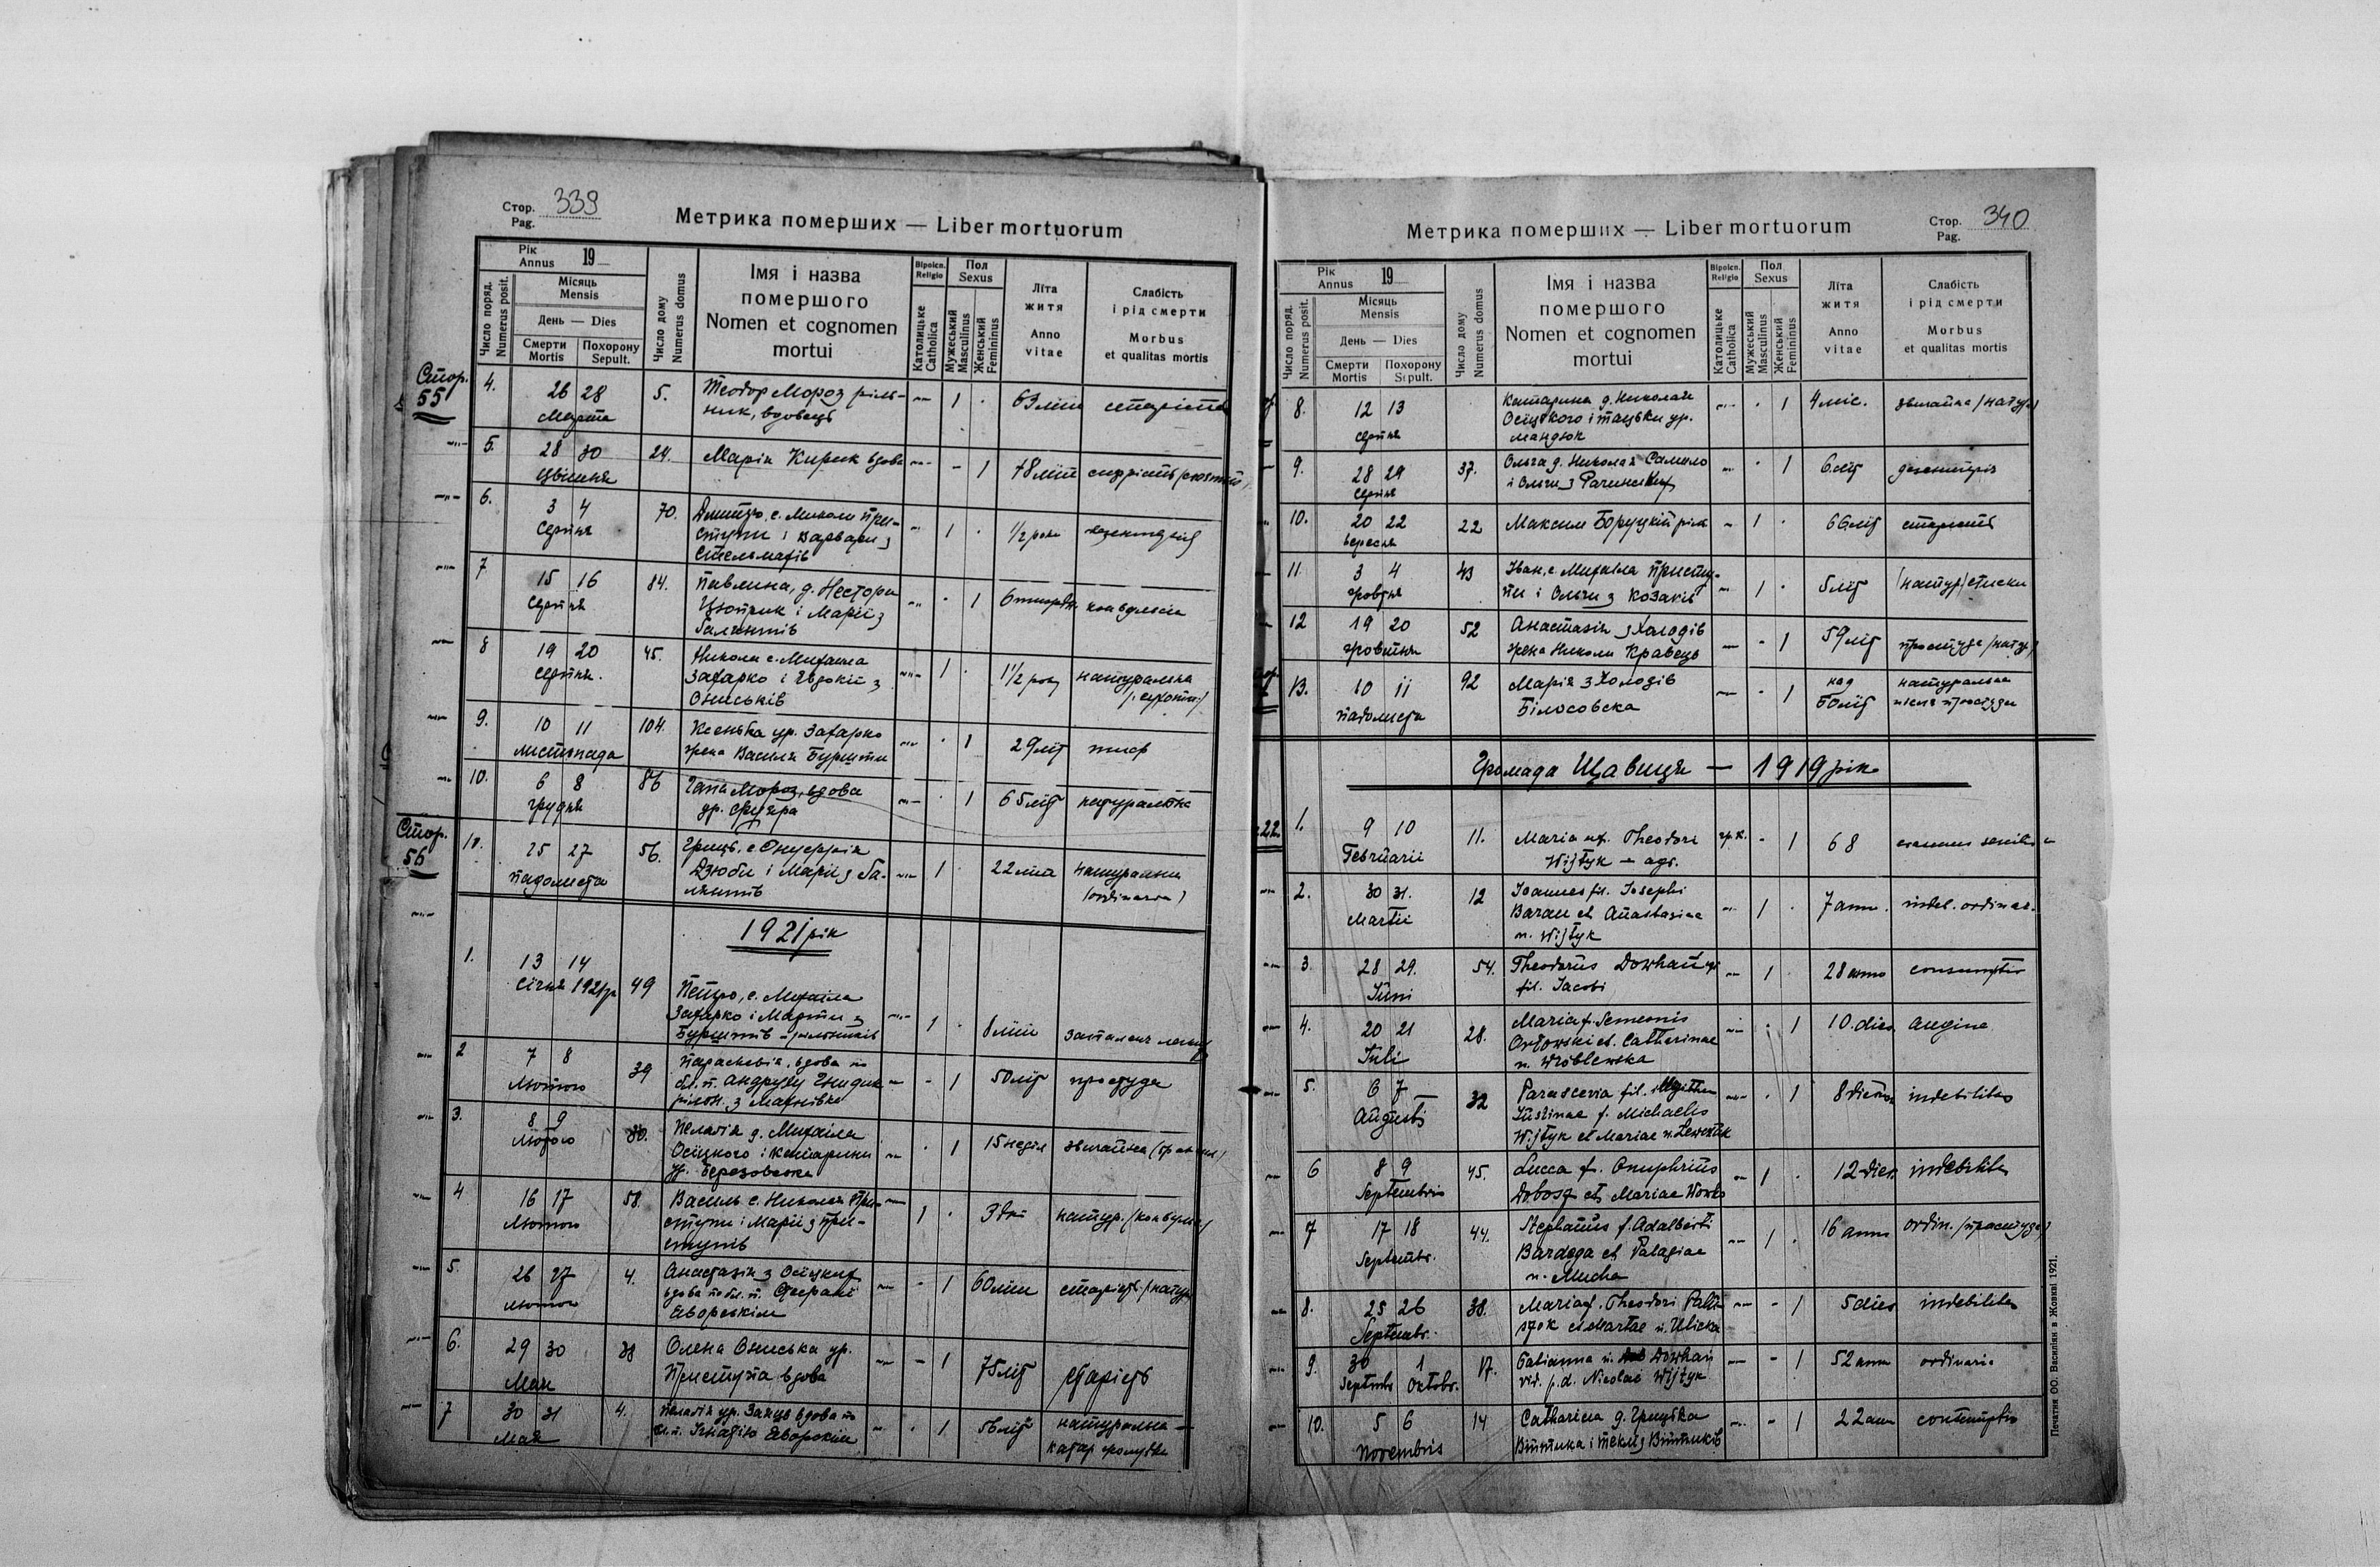 Стор. 339
Pag.
Метрика померших — Liber mortuorum
Рік
Annus 19
Число поряд.
Numerus posit.
Місяць
Mensis
День — Dies
Смерти
Mortis
Похорону
Sepult.
Число дому
Numerus domus
Імя і назва
помершого
Nomen et cognomen
mortui
Віроісп.
Religio
Католицьке
Catholica
Пол
Sexus
Мужеський
Masculinus
Женський
Femininus
Літа
життя
Anno
vitae
Слабість
і рід смерти
Morbus
et qualitas mortis
Стор.
55
4. 26 28 5. Теодор Мороз ріль- 1 63 літ старість
Марта ник, вдовець
5. 28 30 24. Марія Кирик вдова 1 78 літ
Цвітня
6. 3 4 70. Дмитро, с. Миколи При- 1 1/2 року
Серпня ступи і Варвари з
Стельмахів
7 15 16 84. Павлина, д. Нестора 1 конвульсія
Серпня і Марії з
8 19 20 45. Никола с. Михаила 1 1 1/2 року натуральна
Серпня. Захарко і Евдокії з
Ониськів
9. 10 11 104. Ксенька ур. Захарко 1 29 літ тиф
листопада жена Василя
10. 6 8 86 Ганя Мороз, вдова 1 65 літ натуральна
грудня
Стор.
56
11. 25 27 56. Гриць, с Онуфрія 1 22 літа натуральна
падолиста Дзюби і Марії з Ба- (ordinaria)
1921 рік
1. 13 14 49 Петро, с. Михаіла 1 8 літ
січня 1921р Захарко і Марти з
2 7 8 39 Параскевія, вдова по 1 50 літ простуда
Лютого бл. п. Андрузу
3. 8 9 80. Пелагія д. Михаіла 1 15 неділ звичайна
Лютого Осіцкого і Катарини
ур. Березовска
4 16 17 58. Василь с. Николая При- 1 3 дні натур. (конвульс)
Лютого ступи і Марії з При-
ступів
5. 26 27 4. Анастазія з Осіцких 1 60 літ старість (натур)
лютого вдова по бл. п. Стефані
Яворскім
6. 29 30 38 Олена Ониська ур. 1 75 літ старість
Мая Приступа, вдова
7 30 31 4. Пелагія ур. Заяць вдова по 1 56 літ натурална —
Мая бл. п. Ігнатію Яворскім катар
Метрика померших — Liber mortuorum
Стор. 340
Pag.
Рік
Annus 19
Число поряд.
Numerus posit.
Місяць
Mensis
День — Dies
Смерти
Mortis
Похорону
Sepult.
Число дому
Numerus domus
Імя і назва
помершого
Nomen et cognomen
mortui
Віроісп.
Religio
Католицьке
Catholica
Пол
Sexus
Мужеський
Masculinus
Женський
Femininus
Літа
життя
Anno
vitae
Слабість
і рід смерти
Morbus
et qualitas mortis
8. 12 13 Катарина д. Николая 1 4 міс. звичайна (натур)
серпня Осіцкого і Тацьки ур.
Мандзюк
9. 28 29 37. Ольга д. Николая Самило 1 6 літ дезентерія
Серпня і Ольги з
10. 20 22 22 Максим Боруцкій ріль 1 66 літ старість
вересня
11 3 4 43 Іван, с. Михаіла Присту- 1 5 літ (натур)
жовтня пи і Ольги з Козаків
12 19 20 52 Анастазія з Холодів 1 59 літ простуда (натур)
жовтня жена Николи Кравець
13. 10 11 92 Марія з Холодів 1 над натуральна
падолиста Білосовска 50 літ після простуди
Громада Щавиця — 1919 рік
22.
1. 9 10 11. Maria ux. Theodori гр.к. 1 68
Februarii Wijtyk — agr.
2. 30 31. 12 Ioannes fil. Iosephi 1 7 ann. indel. ordinar.
Martii Baran et Anastasiae
n. Wijtyk
3. 28 29. 54. Theodorus Dowhań 1 28 anno consumptio
Juni fil. Iacobi
4. 20 21 28. Maria f. Semeonis 1 10. dies angina
Juli Orłowski et. Catharinae
n. Wróblewska
5. 6 7 32 Parascevia fil. illegittim 1 8 dierum indebilitas
Augusti Justinae f. Michaelis
Wijtyk et Mariae n. Lewczuk
6 8 9 45. Lucca f. Onuphrius 1 12 dies indebilitas
Septembris Dobosz et Mariae
7 17 18 44. Stephanus f. Adalberti 1 16 anno ordin. (простуда)
Septembr. Bardega et Palagiae
n. Mucha
8. 25 26 38. Maria f. Theodori 1 5 dies indebilitas
Septembr. et Martae n. Ulicka
9. 30 1 17. Tatianna n. Dowhań 1 52 ann ordinaria
Septmbr Oktobr. vid. p. d. Nicolai Wijtyk
10. 5 6 14 Catharina д. Грицька 1 22 ann
Novembris Війтика і Теклі з Війтиків
Печатня ОО. Василіян в Жовкві 1921.